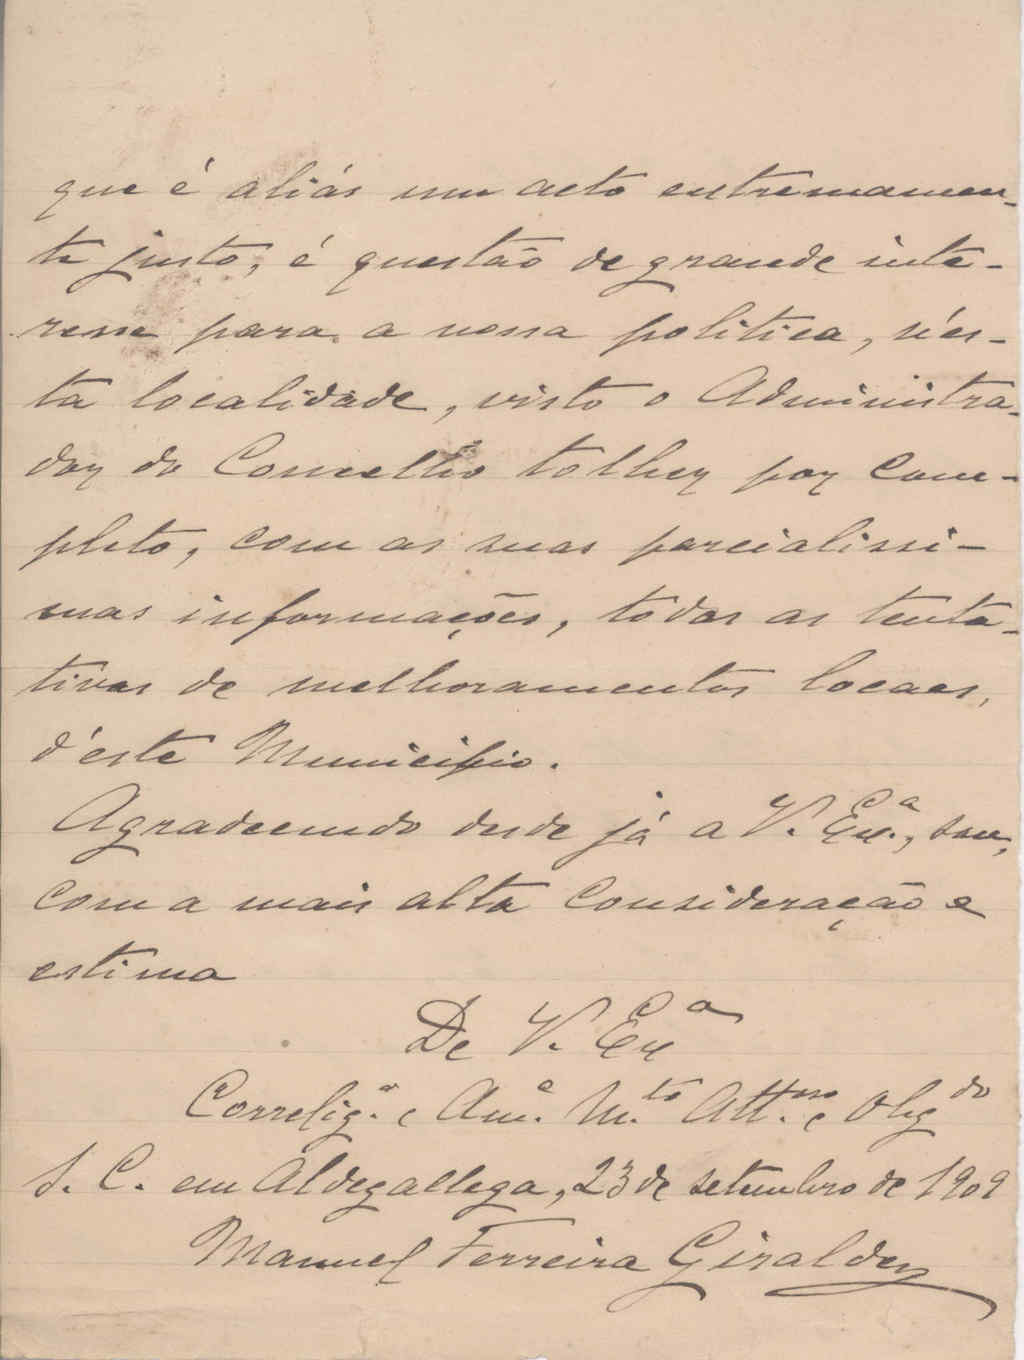 que é aliás um acto extremamen-
te justo, é questão de grande inte-
resse para a nossa politica, n'es-
ta localidade, visto o Administra-
dor do Concelho tolher por com-
pleto, com as suas parcialissi-
mas informações, todas as tenta-
tivas de melhoramentos locaes,
d'este Municipio.
Agradecendo desde já a V. Ex.ª, sou,
com a mais alta Consideração e
estima
De V. Exª
Correlig.º e Am.º M.to Att.mo e Obgdo
S. C. em Aldegallega, 23 de setembro de 1909
Manuel Ferreira Giraldes